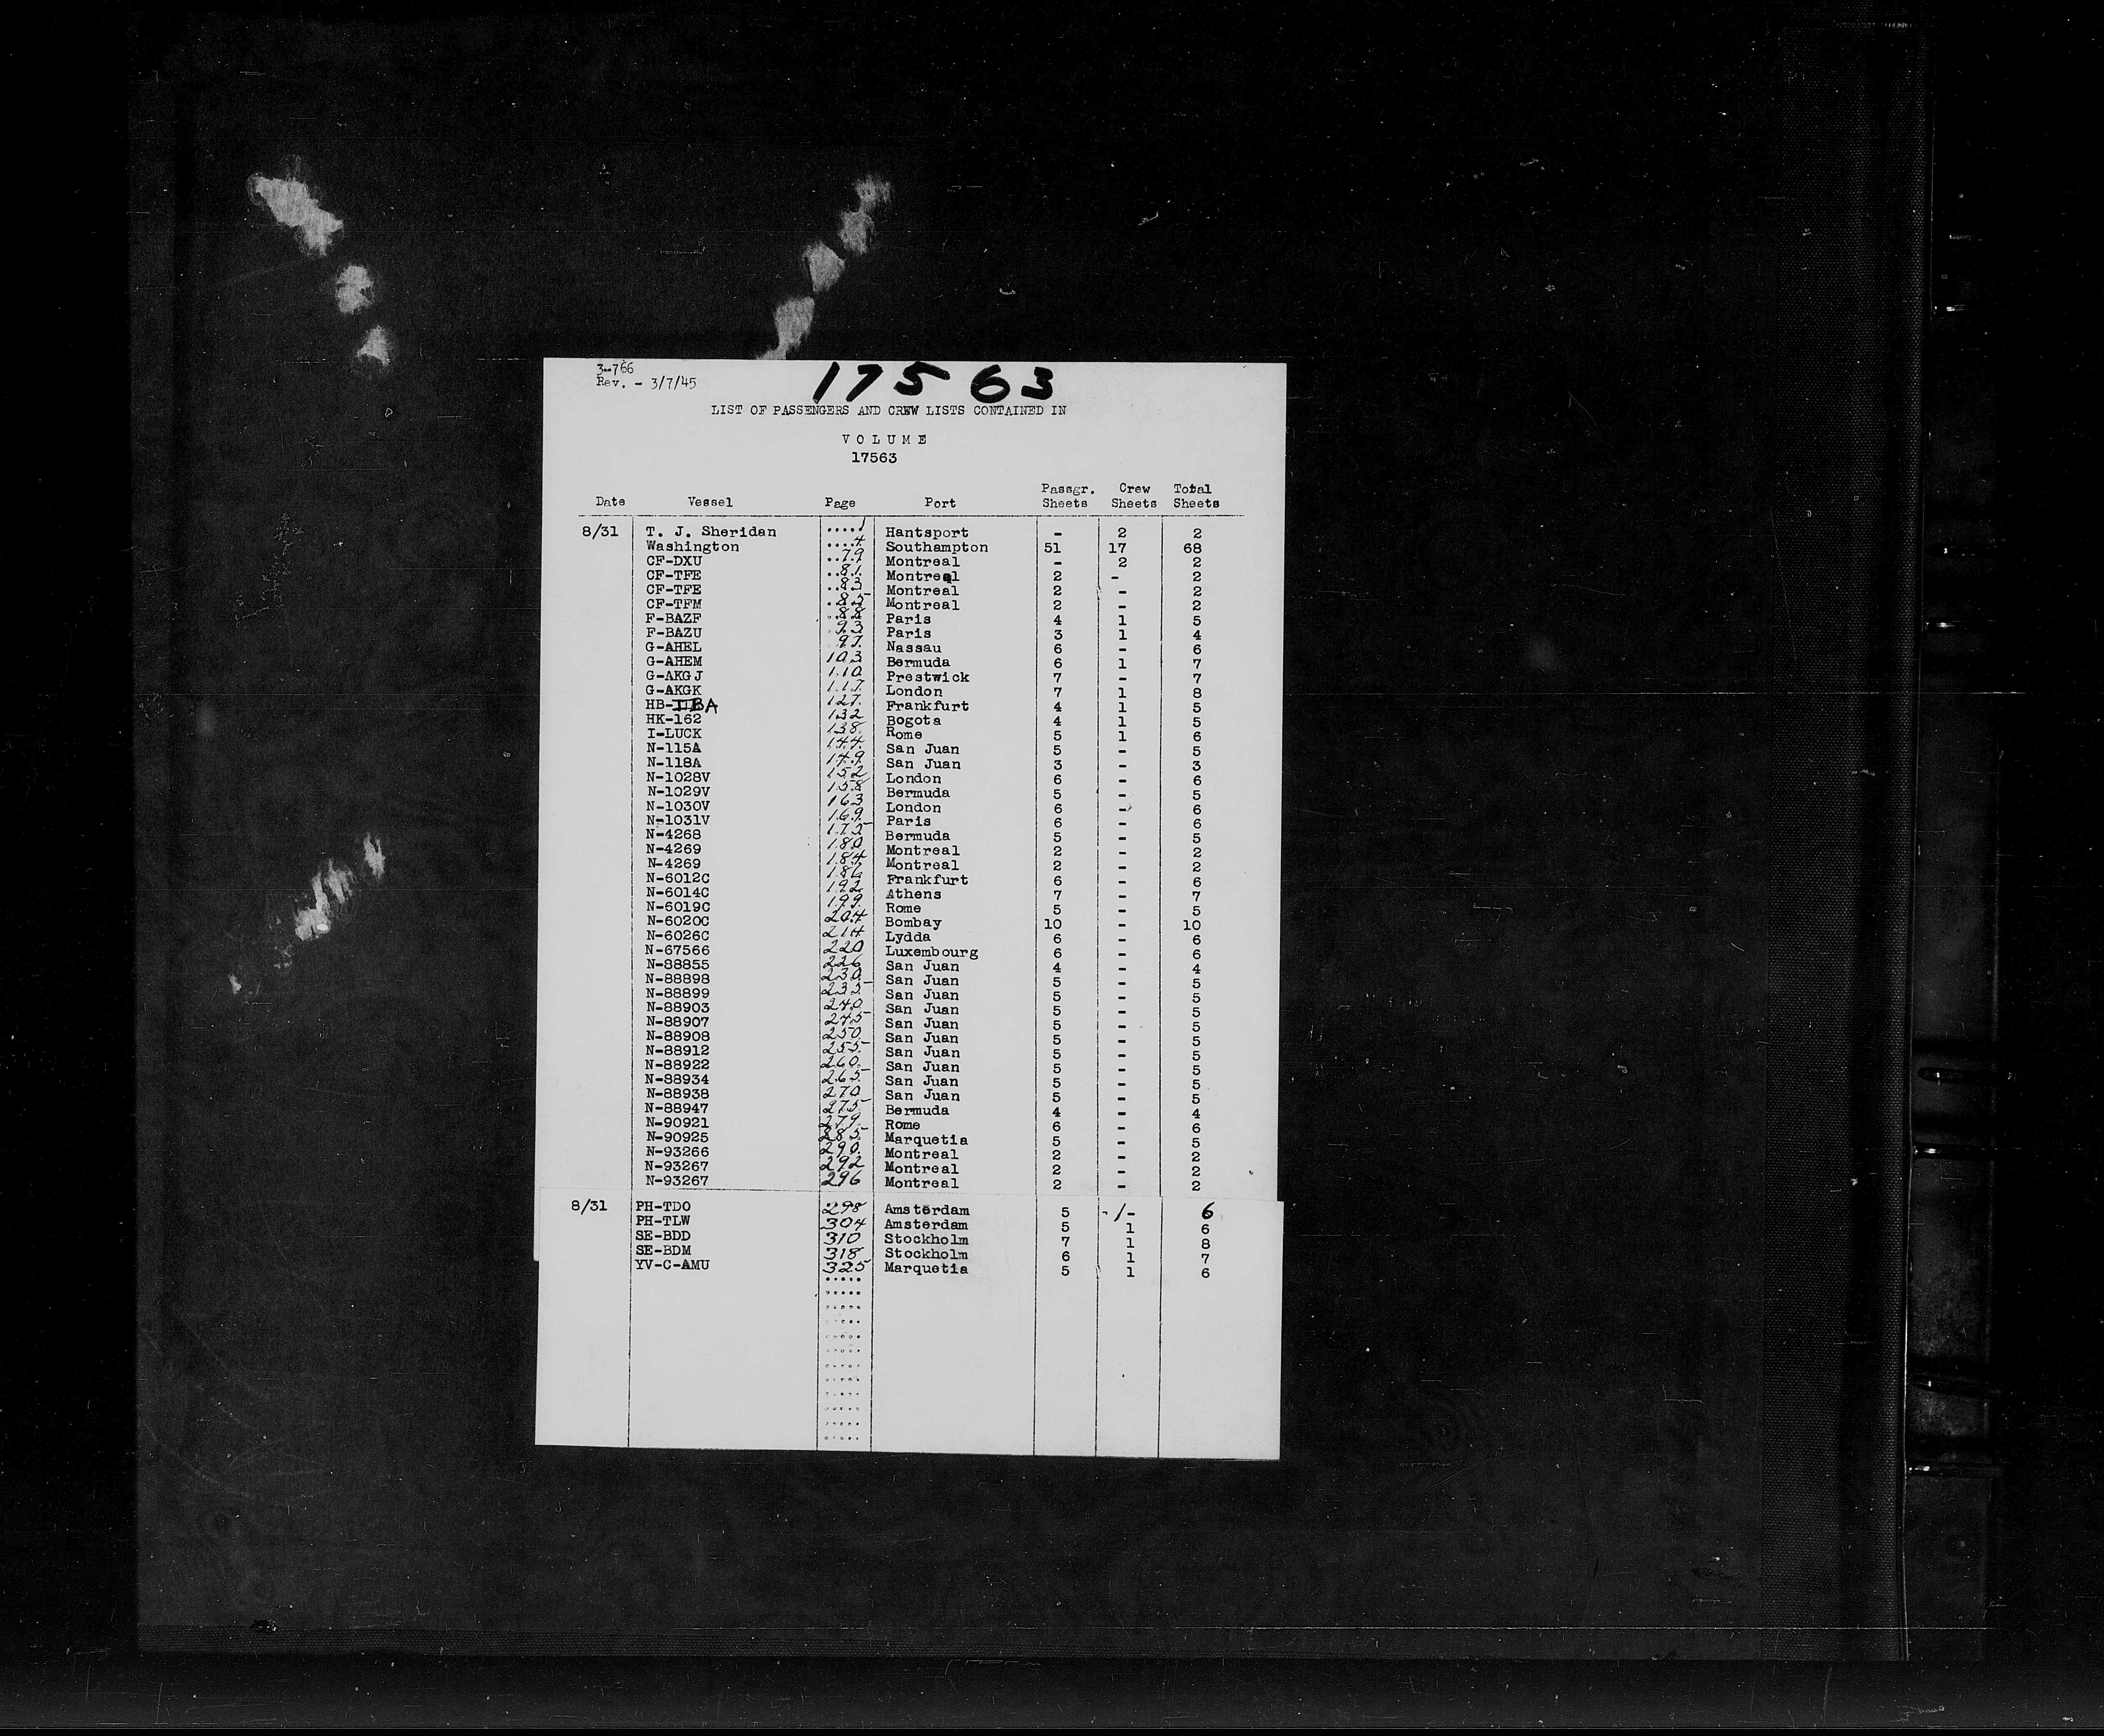 3-766
Rev. - 3/7/45
17563
LIST OF PASSENGERS AND CREW LISTS CONTAINED IN
VOLUME
17563
Date Vessel Page Port Passgr. Sheets Crew Sheets Total Sheets
8/31 T. J. Sheridan ....1 Hantsport - 2 2
Washington ....4 Southampton 51 17 68
CF-DXU ..79 Montreal - 2 2
CF-TFE ..81. Montreal 2 - 2
CF-TFE ..83 Montreal 2 - 2
CF-TFM .85 Montreal 2 - 2
F-BAZF 88 Paris 4 1 5
F-BAZU 93 Paris 3 1 4
G-AHEL 97. Nassau 6 - 6
G-AHEM 103 Bermuda 6 1 7
G-AKGJ 110 Prestwick 7 - 7
G-AKGK 117. London 7 1 8
HB-IBA 127. Frankfurt 4 1 5
HK-162 132 Bogota 4 1 5
I-LUCK 138. Rome 5 1 6
N-115A 144. San Juan 5 - 5
N-118A 149 San Juan 3 - 3
N-1028V 152 London 6 - 6
N-1029V 158 Bermuda 5 - 5
N-1030V 163 London 6 - 6
N-1031V 169. Paris 6 - 6
N-4268 175 Bermuda 5 - 5
N-4269 180 Montreal 2 - 2
N-4269 184 Montreal 2 - 2
N-6012C 186 Frankfurt 6 - 6
N-6014C 192 Athens 7 - 7
N-6019C 199. Rome 5 - 5
N-6020C 204 Bombay 10 - 10
N-6026C 214 Lydda 6 - 6
N-67566 220 Luxembourg 6 - 6
N-88855 226 San Juan 4 - 4
N-88898 230. San Juan 5 - 5
N-88899 235. San Juan 5 - 5
N-88903 240 San Juan 5 - 5
N-88907 245 San Juan 5 - 5
N-88908 250 San Juan 5 - 5
N-88912 255. San Juan 5 - 5
N-88922 260. San Juan 5 - 5
N-88934 265. San Juan 5 - 5
N-88938 270 San Juan 5 - 5
N-88947 275 Bermuda 4 - 4
N-90921 279. Rome 6 - 6
N-90925 285. Marquetia 5 - 5
N-93266 290. Montreal 2 - 2
N-93267 292 Montreal 2 - 2
N-93267 296 Montreal 2 - 2
8/31 PH-TDO 298 Amsterdam 5 -1- 6
PH-TLW 304 Amsterdam 5 1 6
SE-BDD 310 Stockholm 7 1 8
SE-BDM 318 Stockholm 6 1 7
YV-C-AMU 325 Marquetia 5 1 6